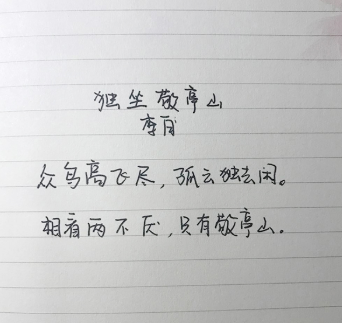 独坐敬亭山
李白
众鸟高飞尽，孤云独去闲。
相看两不厌，只有敬亭山。